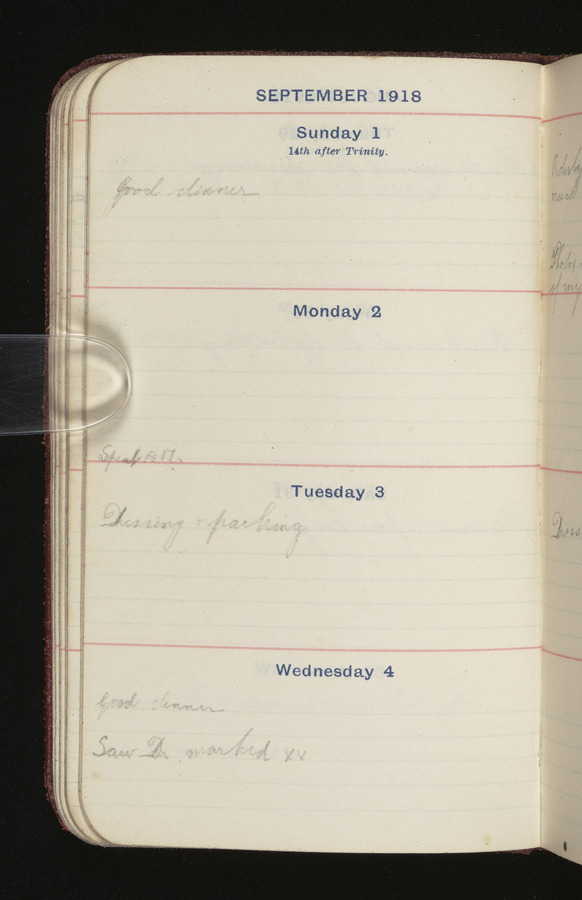 SEPTEMBER 1918
Sunday 1
14th after Trinity.
Good dinner
Monday 2
Tuesday 3
Dressing + packing
Wednesday 4
Good dinner
Saw Dr. marked xx